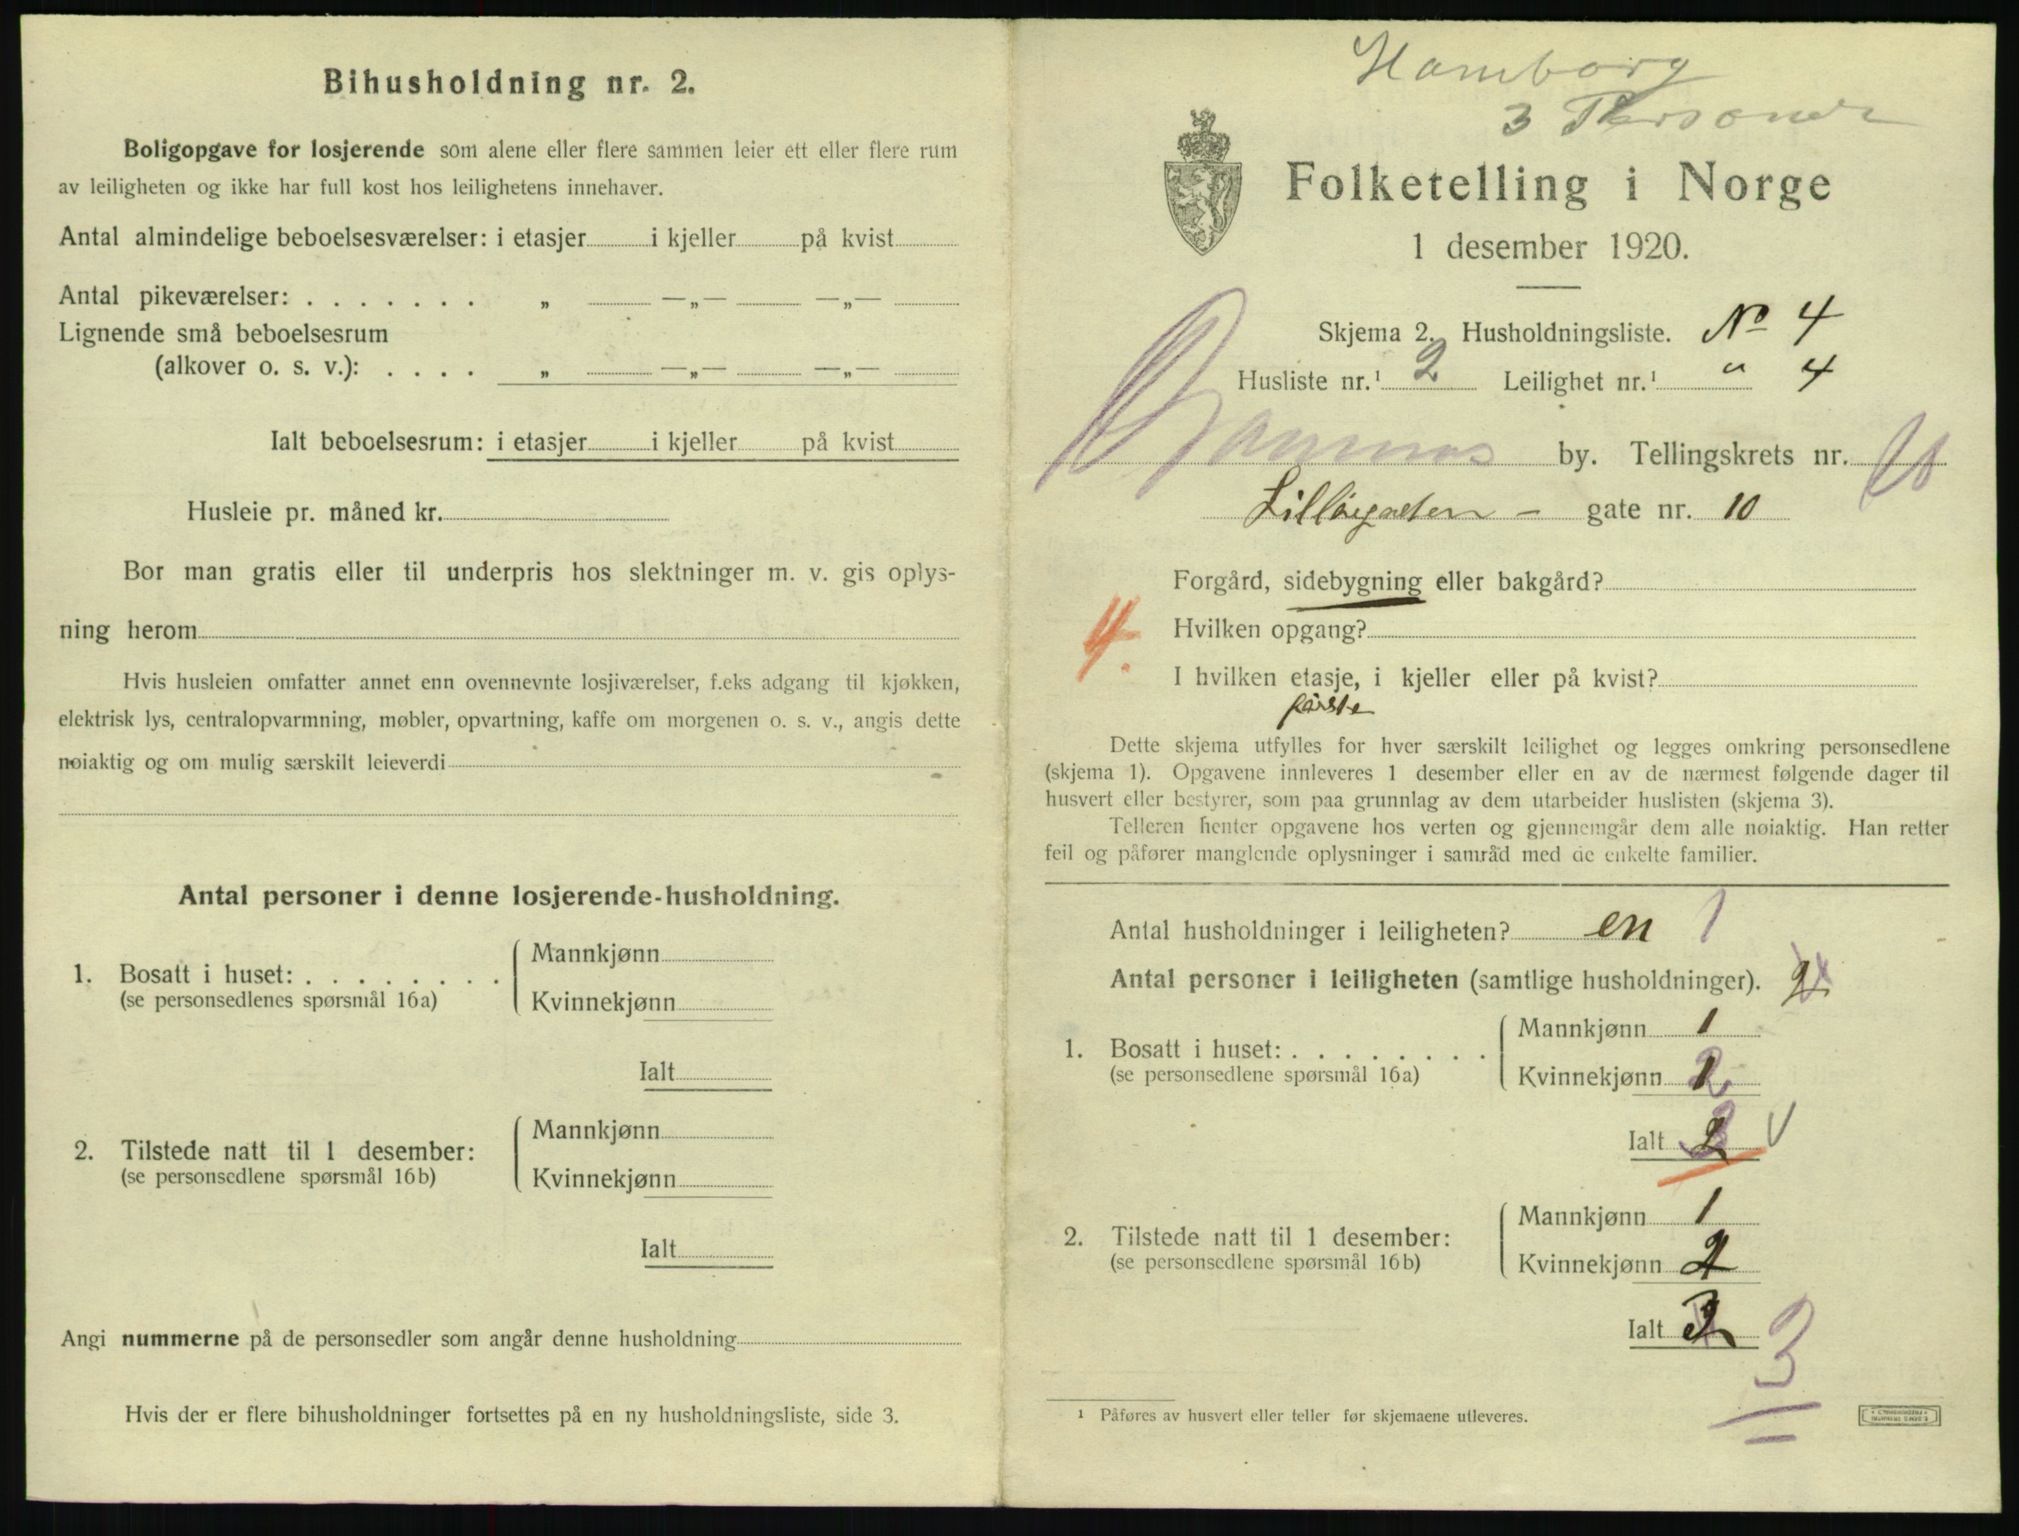 Bihusholdning nr. 2.
Boligopgave for losjerende som alene eller flere sammen leier ett eller flere rum
av leiligheten og ikke har full kost hos leilighetens innehaver.
Antal almindelige beboelsesværelser: i etasjer i kjeller på kvist
Antal pikeværelser: . . . . . . . „ —„— —„—
Lignende små beboelsesrum
(alkover o. s. v.): . . . . „ —„— —„—
Ialt beboelsesrum: i etasjer i kjeller på kvist
Husleie pr. måned kr.
Bor man gratis eller til underpris hos slektninger m. v. gis oplys-
ning herom
Hvis husleien omfatter annet enn ovennevnte losjiværelser, f.eks adgang til kjøkken,
elektrisk lys, centralopvarmning, møbler, opvartning, kaffe om morgenen o. s. v., angis dette
nøiaktig og om mulig særskilt leieverdi
Antal personer i denne losjerende-husholdning.
1. Bosatt i huset: . . . . . . . .
(se personsedlenes spørsmål 16a)
Mannkjønn
Kvinnekjønn
Ialt
2. Tilstede natt til 1 desember:
(se personsedlene spørsmål 16b)
Mannkjønn
Kvinnekjønn
Ialt
Angi nummerne på de personsedler som angår denne husholdning
Hvis der er flere bihusholdninger fortsettes på en ny husholdningsliste, side 3.
Hamborg
3 Personer
Folketelling i Norge
1 desember 1920.
Skjema 2. Husholdningsliste. No 4
Husliste nr.¹ 2 Leilighet nr.¹ " 4
by. Tellingskrets nr.
gate nr. 10
Forgård, sidebygning eller bakgård?
4.
Hvilken opgang?
I hvilken etasje, i kjeller eller på kvist?
første
Dette skjema utfylles for hver særskilt leilighet og legges omkring personsedlene
(skjema 1). Opgavene innleveres 1 desember eller en av de nærmest følgende dager til
husvert eller bestyrer, som paa grunnlag av dem utarbeider huslisten (skjema 3).
Telleren henter opgavene hos verten og gjennemgår dem alle nøiaktig. Han retter
feil og påfører manglende oplysninger i samråd med de enkelte familier.
Antal husholdninger i leiligheten? en 1
Antal personer i leiligheten (samtlige husholdninger).
1. Bosatt i huset: . . . . . . . .
(se personsedlene spørsmål 16a)
Mannkjønn 1
Kvinnekjønn 2
Ialt 3
2. Tilstede natt til 1 desember:
(se personsedlene spørsmål 16b)
Mannkjønn 1
Kvinnekjønn 2
Ialt 3 3
¹ Påføres av husvert eller teller før skjemaene utleveres.